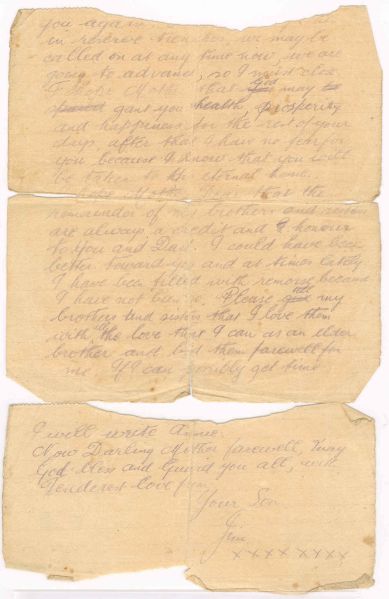 you again
in reserve trenches, we may be
called on at any time now, we are
going to advance, so I must close
I hope Mother that God may
spared gant you health, prospering
and happiness for the rest of your
days, after that I have no fear for
you because I know that you will
be taken to the eternal home.
Mother Dear that the
remainder of my brothers and sisters
are always a credit and honour
to you and Dad. I could have been
better towards you and at times lately
I have been filled with remorse because
I have not been so. Please my
brothers and sisters that I love them
with the love that I can as an elder
brother and bid them farewell for
me. If I can possibly get time
I will write Annie.
Now Darling Mother farewell, may
God bless and Guard you all, with
Tenderest love from
Your Son
Jim
xxxx xxxx